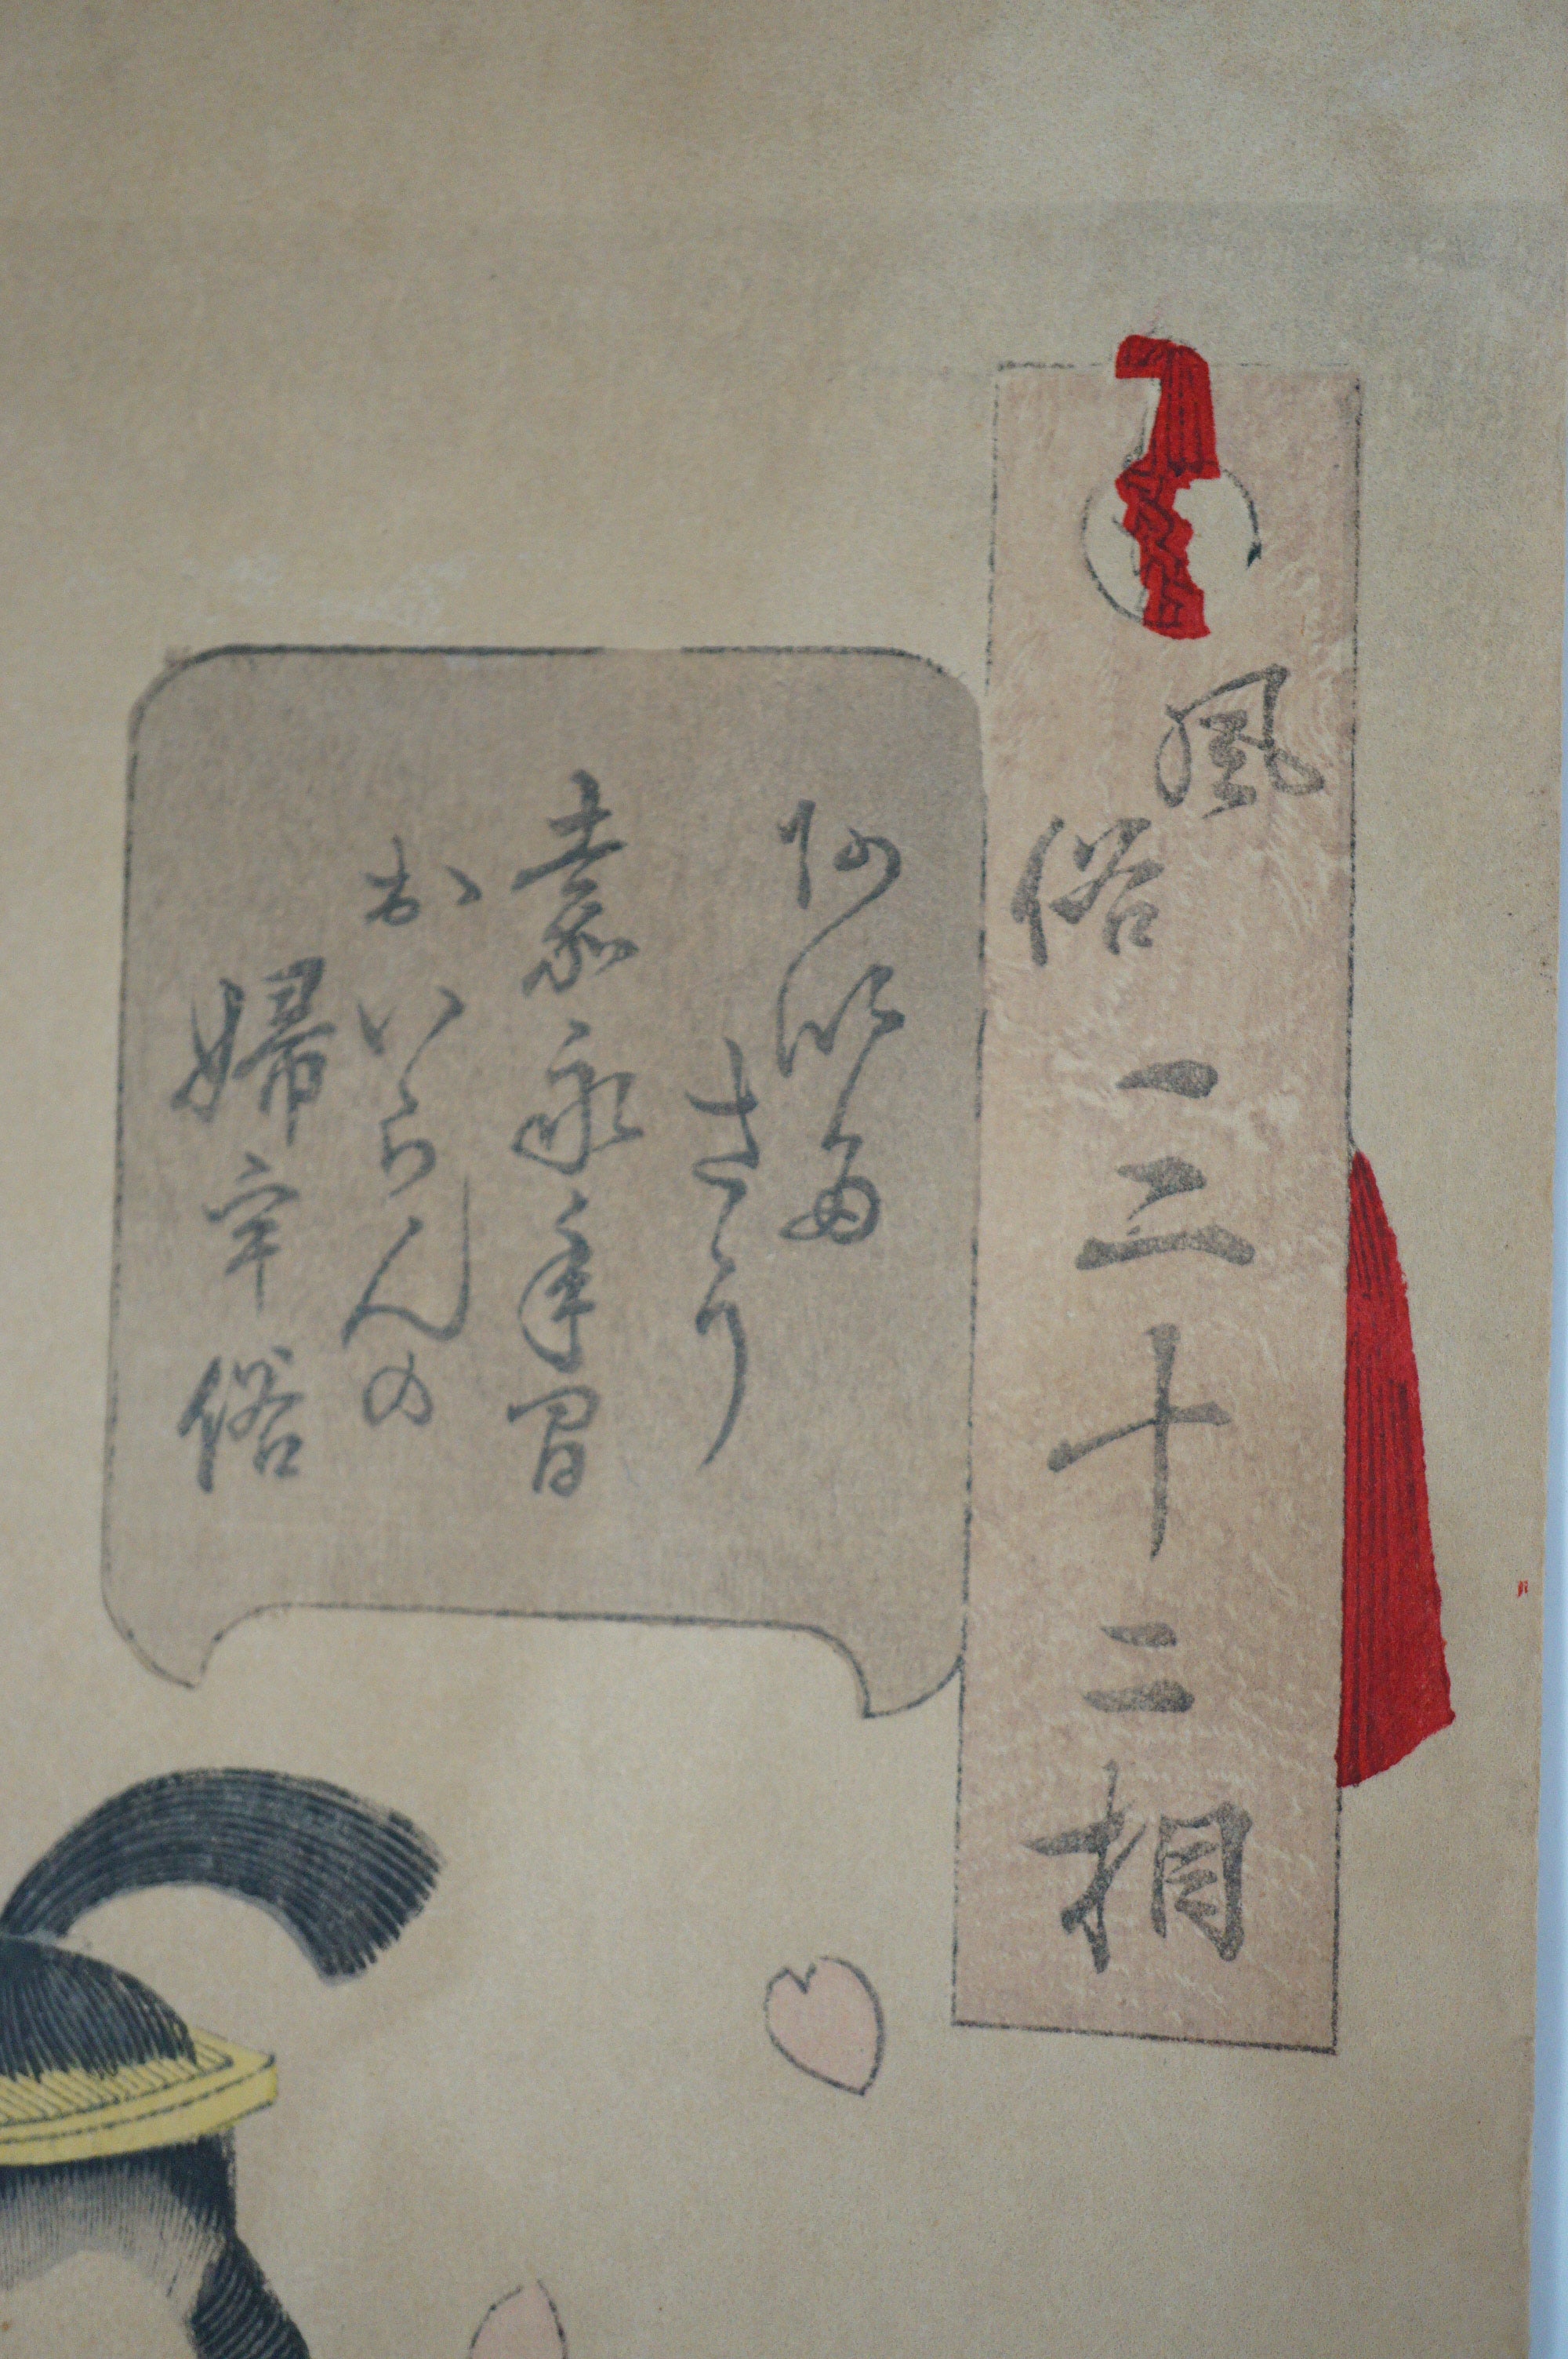 風俗三十二相
阿以多
さう
嘉永年間
おいらんの
婦宇俗